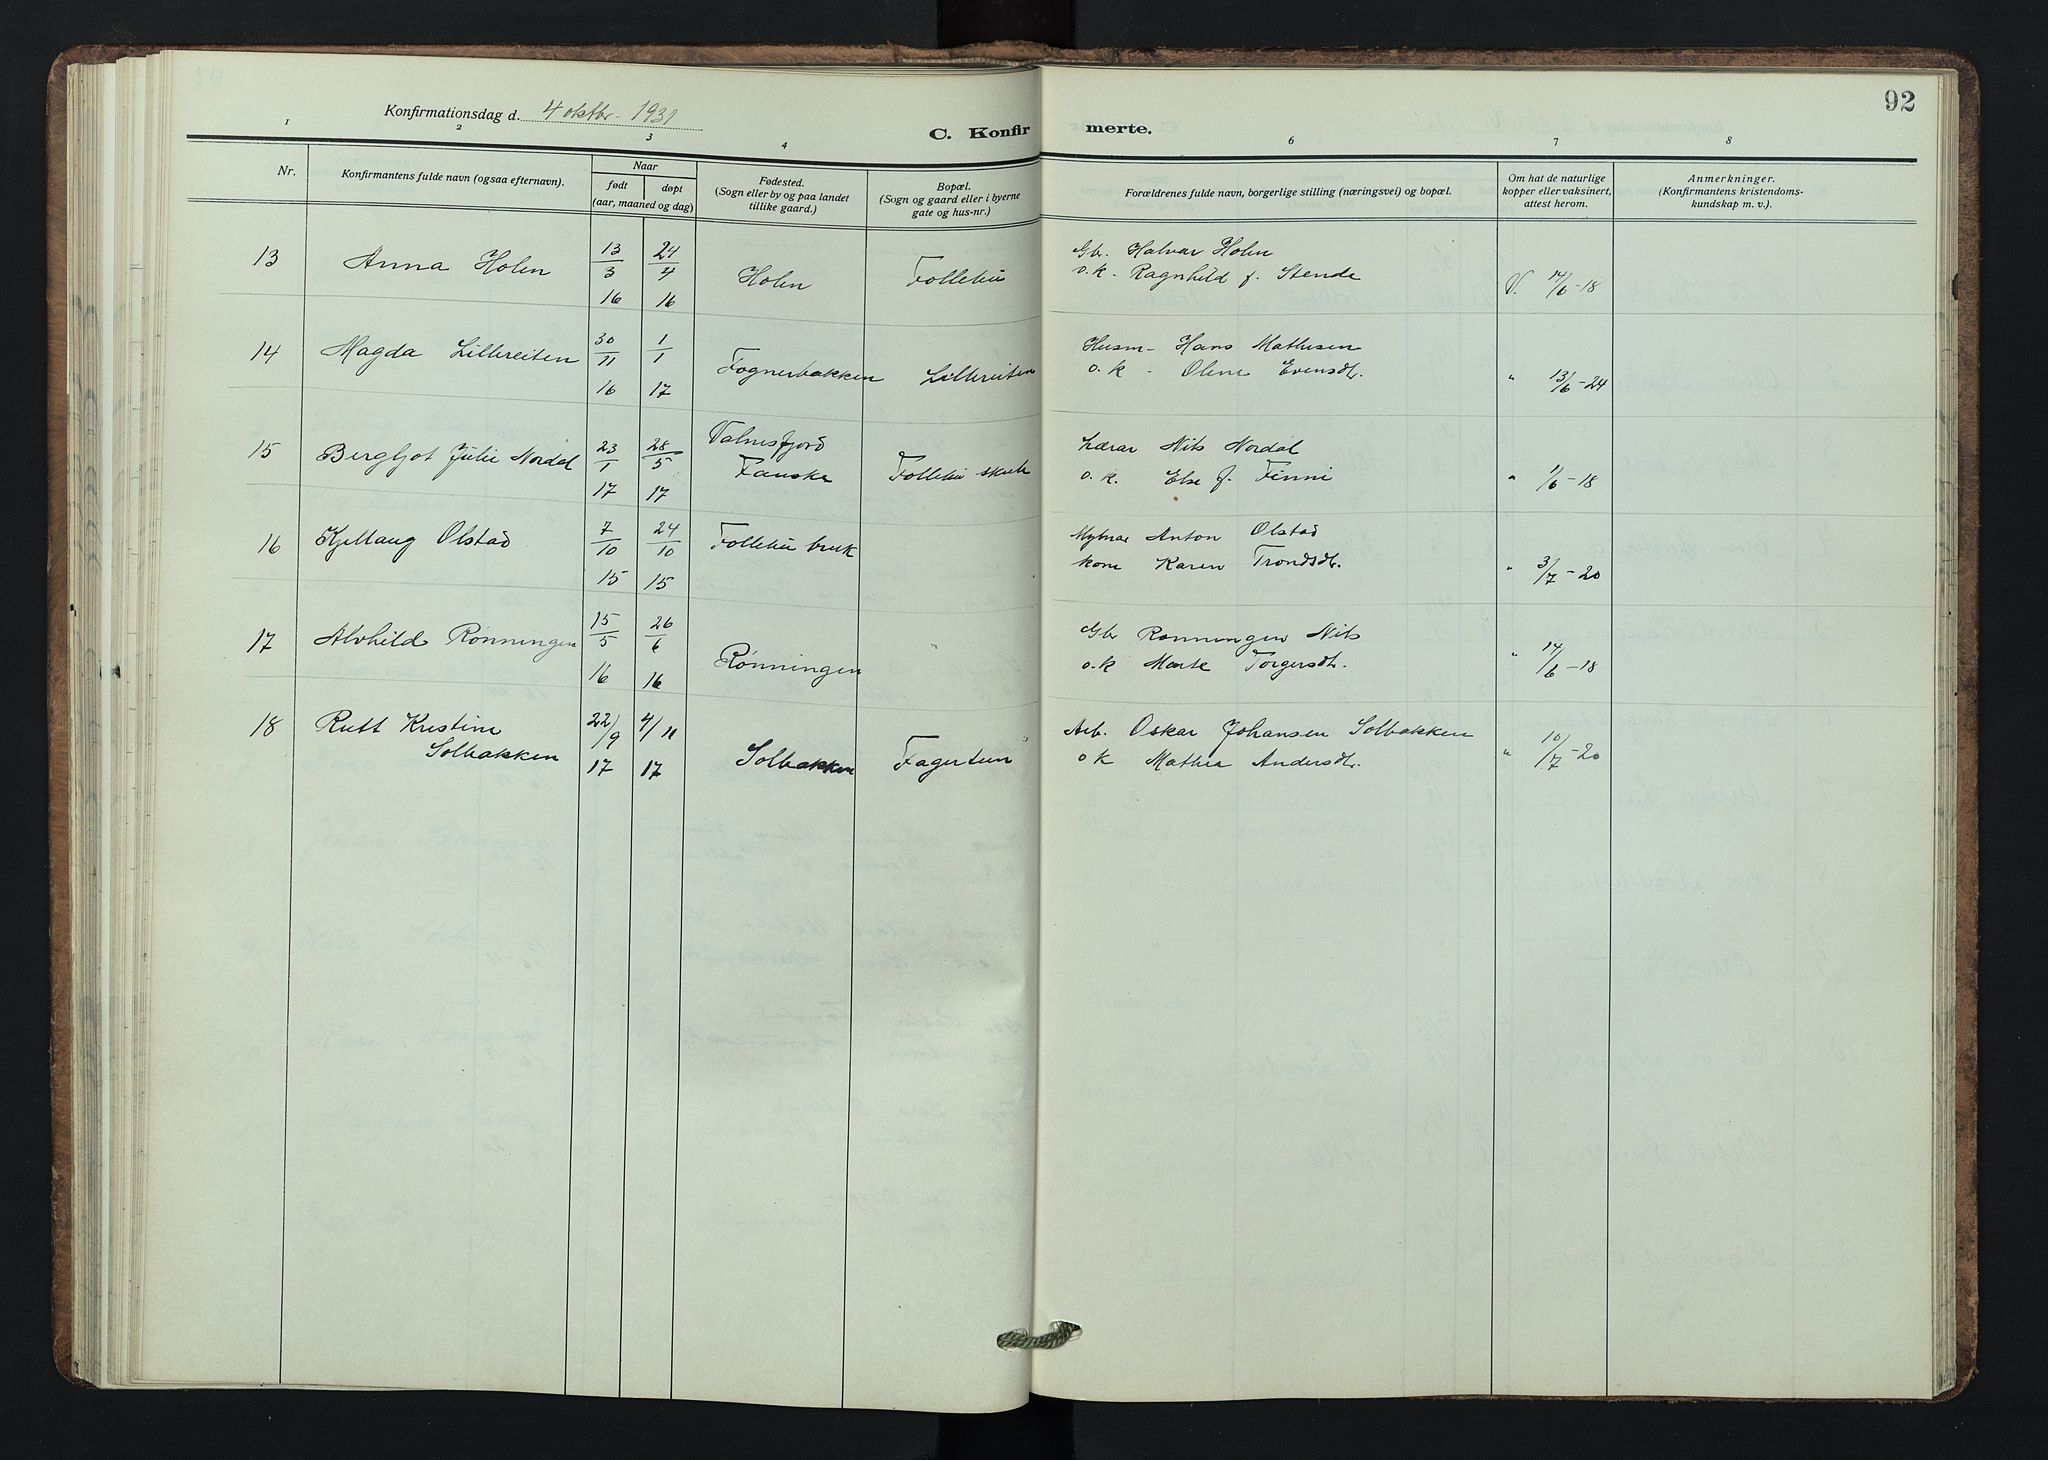 92
Konfirmationsdag d. 4 oktbr. 1931
C. Konfirmerte.
1 2 3 4 6 7 8
Nr.
Konfirmantens fulde navn (ogsaa efternavn).
Naar
født
døpt
(aar, maaned og dag)
Fødested.
(Sogn eller by og paa landet
tillike gaard.)
Bopæl.
(Sogn og gaard eller i byerne
gate og hus-nr.)
Forældrenes fulde navn, borgerlige stilling (næringsvei) og bopæl.
Om hat de naturlige
kopper eller vaksinert,
attest herom.
Anmerkninger.
(Konfirmantens kristendoms-
kundskap m. v.).
13 Anna Holen 13/3 16 24/4 16 Holen Follebu
Gbr. Halvar Holen
o.k. Ragnhild f. Stende V. 14/6-18
14 Magda Lillereiten 30/11 16 1/1 17 Fognerbakken Lillereiten
Husm- Hans Mathisen
o. k - Oline Evensdt. " 13/6-24
15 Bergljot Julie Nordal 23/1 17 28/5 17 Valnesfjord
Fauske Follebu skule
Lærar Nils Nordal
o. k. Else f. Finni " 1/6-18
16 Kjellaug Olstad 7/10 15 24/10 15 Follebu bruk
Mylnar Anton Olstad
kone Karen Trondsdt. " 3/7-20
17 Alvhild Rønningen 15/5 16 26/6 16 Rønningen "
Gbr Rønningen Nils
o.k Marte Torgersdt. " 14/6-18
18 Rutt Kristine
Solbakken 22/9 17 4/11 17 Solbakken Fagertun
Arb. Oskar Johansen Solbakken
o k Mathea Andersdt. " 10/7-20